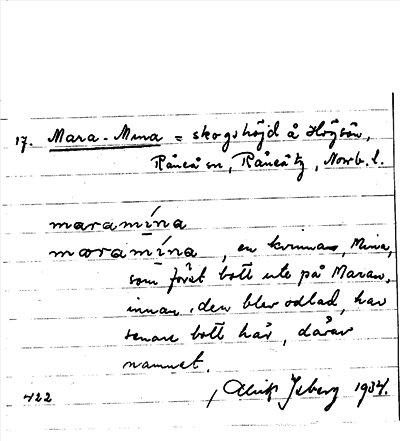 17. Mara-Mina = skogshöjd å Höjsön,
Råneå sn, Råneåtg, Norrb. l.
maramína
mɑramína, en kvinna, Mina,
som förut bott ute på Maran,
innan den blev odlad, har
senare bott här, därav
namnet.
422
Isberg 1934.